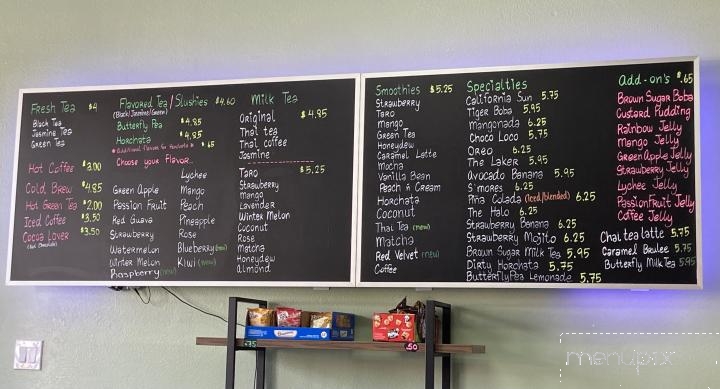 Fresh Tea $4
Black Tea
Jasmine Tea
Green Tea
Hot Coffee $3.00
Cold Brew $4.85
Hot Green Tea $2.00
Iced Coffee $3.50
Cocoa Lover $3.50
Flavored Tea/Slushies $4.60
(Black/Jasmine/Green)
Butterfly Pea $4.85
Horchata $4.85
* Additional flavors for Horchata * $.65
Choose your Flavor..
Lychee
Green Apple Mango
Passion Fruit Peach
Red Guava Pineapple
Strawberry Rose
Watermelon Blueberry (new)
Winter Melon Kiwi (new)
Raspberry (new)
Milk Tea
Original $4.95
Thai tea
Thai coffee
Jasmine
Taro $5.25
Strawberry
Mango
Lavender
Winter Melon
Coconut
Rose
Matcha
Honeydew
Almond
Smoothies $5.25
Strawberry
Taro
Mango
Green Tea
Honeydew
Caramel Latte
Mocha
Vanilla Bean
Peach n Cream
Horchata
Coconut
Thai Tea (new)
Matcha
Red Velvet (new)
Coffee
Specialties
California Sun 5.75
Tiger Boba 5.95
Mangonada 6.25
Choco Loco 5.75
Oreo 6.25
The Laker 5.95
Avocado Banana 5.95
S'mores 6.25
Piña Colada (Iced/blended) 6.25
The Halo 6.25
Strawberry Banana 6.25
Strawberry Mojito 6.25
Brown Sugar Milk Tea 5.95
Dirty Horchata 5.75
ButterflyPea Lemonade 5.75
Add-on's $.65
Brown Sugar Boba
Custard Pudding
Rainbow Jelly
Mango Jelly
Green Apple Jelly
Strawberry Jelly
Lychee Jelly
Passionfruit Jelly
Coffee Jelly
Chai tea latte 5.75
Caramel Brulee 5.75
Butterfly Milk Tea 5.95
.75
.50
menupix